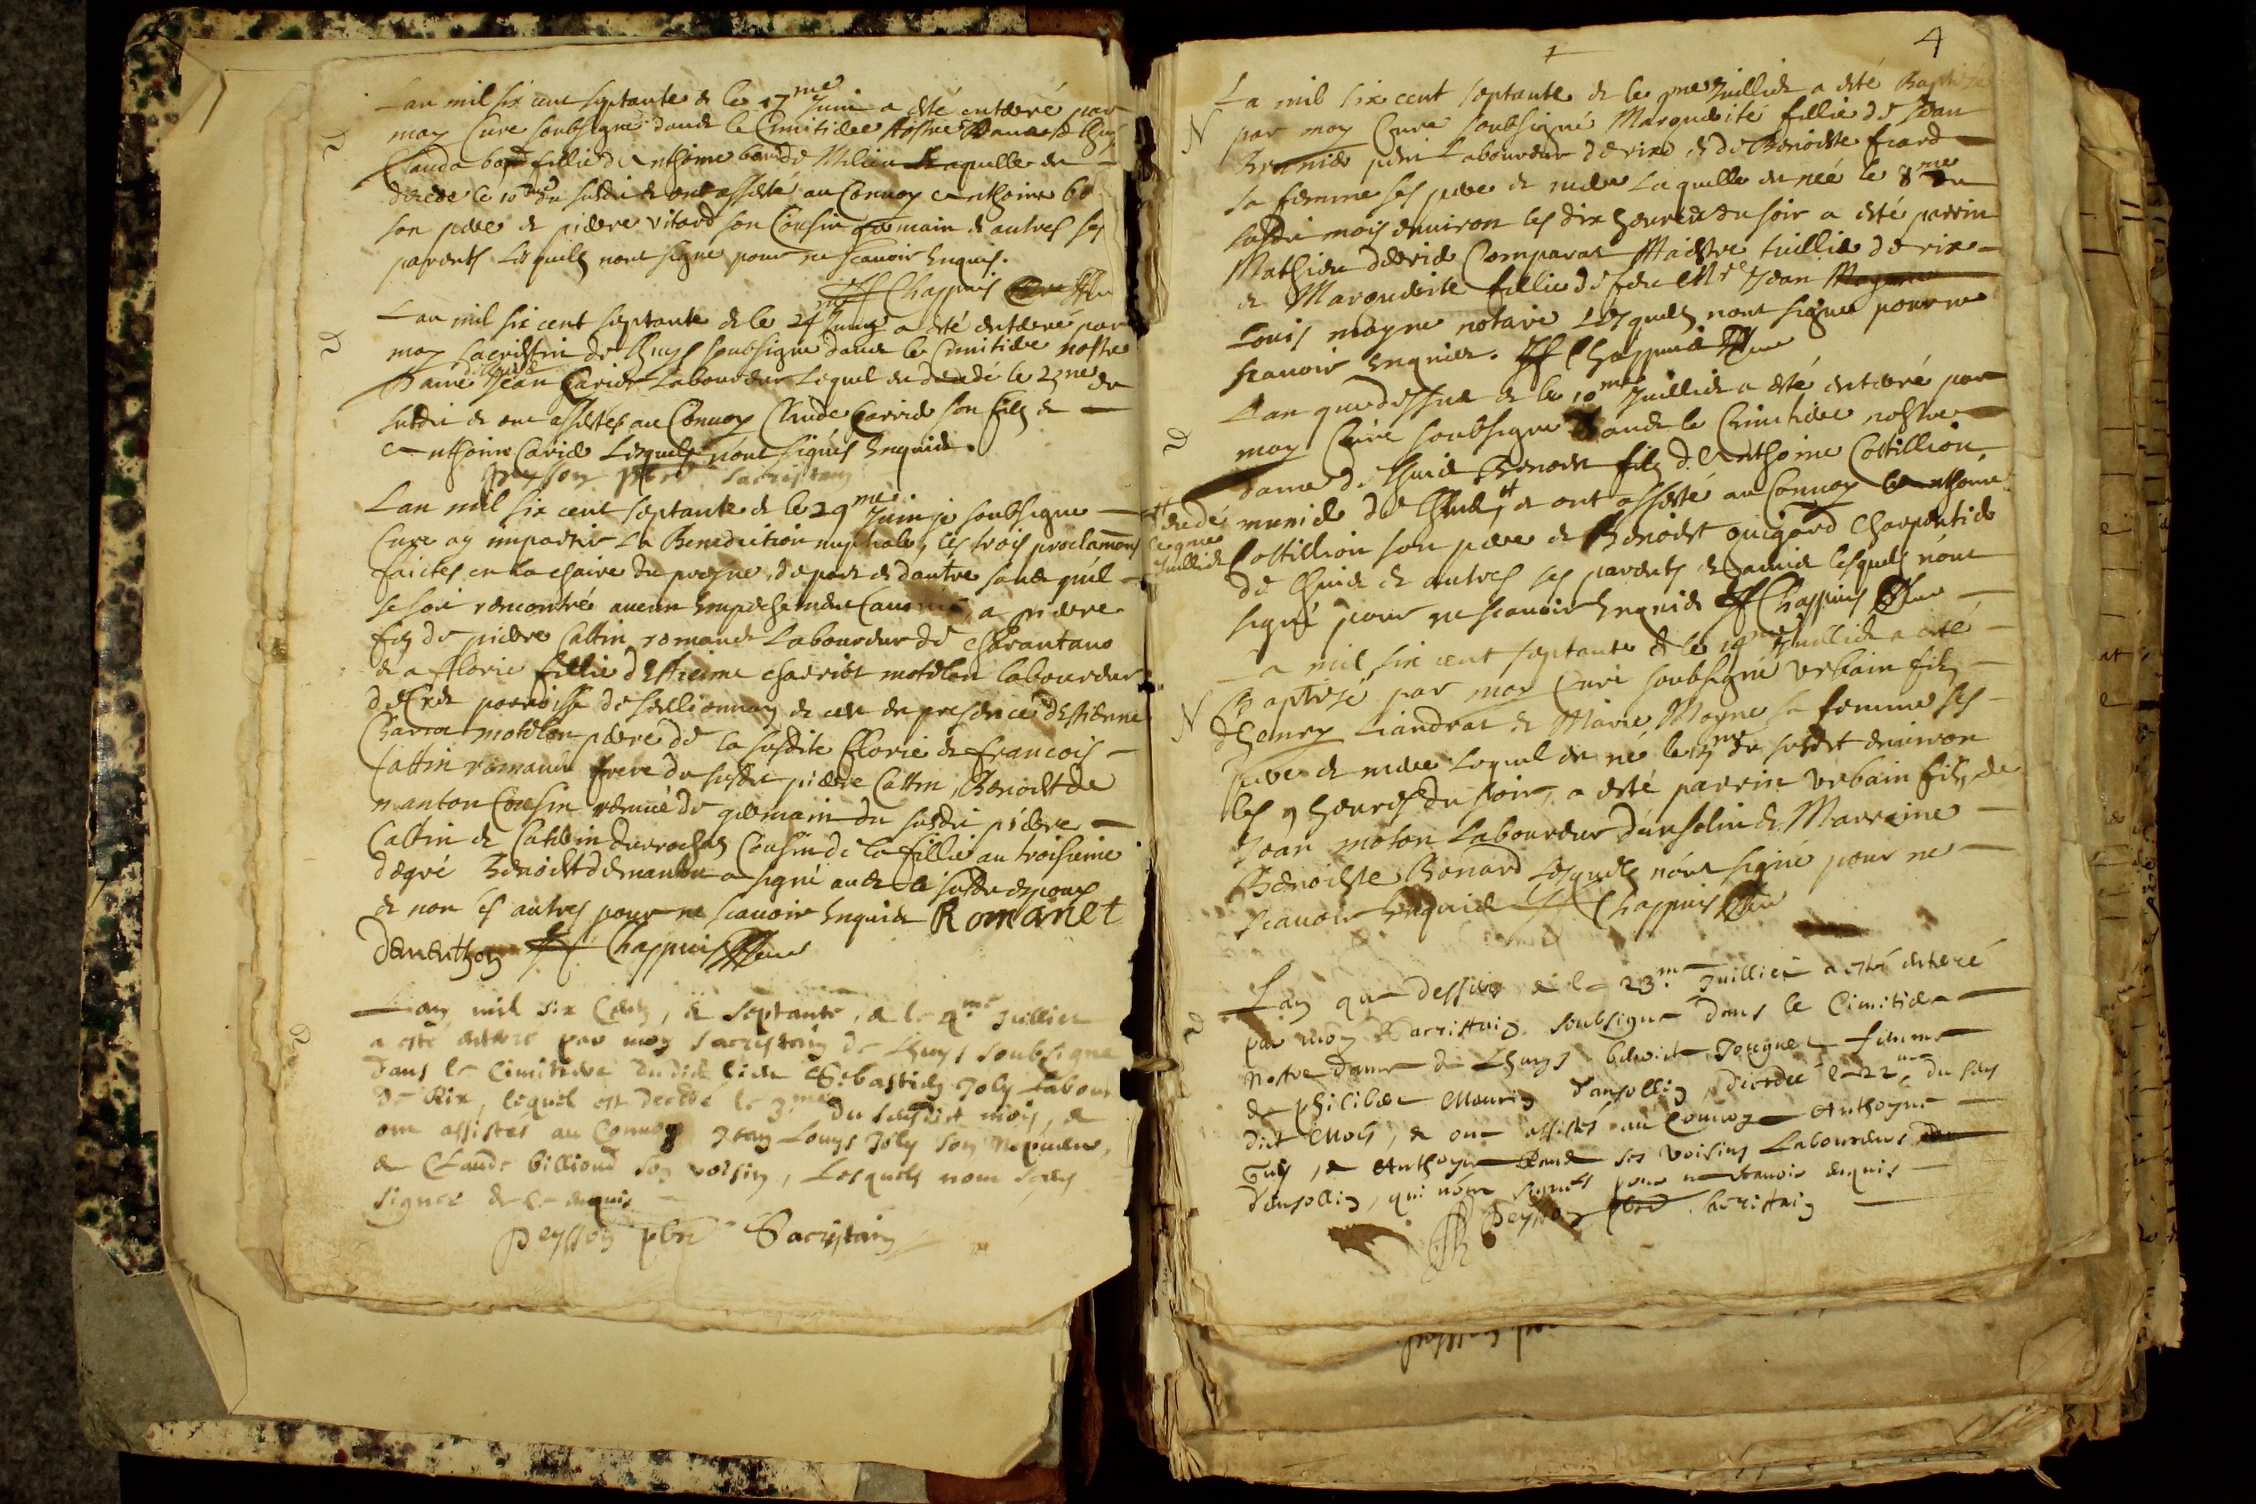 Lan mil six cent septante & le 17me Juin a esté enterré par
moy Curé soubsigné dans le Cimitiere nostre Dame de Lhuys
Clauda fillie d'Anthoine de Milieu laquelle est
decede le 16me du susdit & ont assisté au Convoy Anthoine
son pere & pierre vitard son Cousin germain & autres ses
parents lesquels nont signe pour ne scavoir enquis.
Chappuis Curé
D
Lan mil six cent septante & le 24me Juing a esté enterré par
moy sacristin de Lhuys soubsigné dans le Cimitiere nostre
Dame Jean Carier Laboureur lequel est decedé le 23me du
susdit & ont assistés au Convoy Claude Carrier son filz &
Anthoine Carier Lesquels n'ont signés enquis.
Peysson pbre Sacristain
D
Lan mil six cent septante & le 29me Juin je soubsigne
Curé ay impartir La Benediction nuptiale, les trois proclamaõns
faictes en la chaire du prosne, de part & dautre sans quil
se soit rencontré aucun empeschement Canonic, a pierre
filz de pierre Cattin romanet Laboureur de Charantano
& a Florie fillie d'Estienne charriot motelon laboureur
de parroisse de & ce en presence d'Estienne
motelon pere de la susdite Florie & francois
Cattin romanet frere du susdit pierre Cattin, Benoist de
manton Cousin remué de germain du susdit pierre
Cattin & Cousin de la fillie au troisieme
degré Benoist demanton a signé avec le susdit espoux
& non les autres pour ne scavoir enquis Romanet
Dementhon Chappuis Curé
D
Lan mil six Cents, & septante, & le 4me Juillier
a esté enterré par moy sacristain de Lhuys soubsigné
Dans le Cimitiere dudit lieu Sebastien Joly Labour
De Rix, lequel est decede le 3me du susdict mois, &
ont assistes au Convoy Jean Louys Joly son Nepveu,
& Claude billioud son voisin, Lesquels nont sceu
signer de ce enquis
Peysson pbre Sacristain
4
N
La mil six cent septante & le 9me Juillier a esté Baptisée
par moy Curé soubsigné Marguerite fillie de Jean
Laboureur de rix & de Benoiste ficard
sa femme ses pere & mere Laquelle est née le 8me du
susdit mois environ les dix heures du soir a esté parrin
Mathieu Comparat Maistre tuillier de rix
& Marguerite fillie de feu Me Jean
Louis moyne notaire Lesquels nont signe pour ne
scavoir enquis. Chappuis Curé
D
Lan que dessus & le 10me Juillier a esté enterré par
moy Curé soubsigné dans le Cimitiere nostre
Dame de Lhuis Benoist filz d'Anthoine Costillion
munier de Lhuis, & ont assisté au Convoy Anthoine
decedé
le 9me
Juillier
Costillion son pere & Benoist guigard Charpentier
de Lhuis & autres ses parents & amis lesquels n'ont
signé pour ne scavoir enquis Chappuis Curé
N
La mil six cent septante & le 14me Juillier a esté
Baptisé par moy Curé soubsigné Urbain filz
d'henry Liandrat & Marie Moyne sa femme ses
pere & mere Lequel est né le 13me du susdit environ
les 9 heures du soir, a esté parrin Urbain filz de
Jean moton Laboureur d'ansolin & Marraine
Benoiste Bonard Lesquels n'ont signé pour ne
scavoir enquis Chappuis Curé
D
Lan que dessus & le 23me Juillier a esté enterré
par moy Sacristain soubsigné dans le Cimitiere
Nostre Dame de Lhuys benoite Jougnet femme
de philibert Maurin d'ansollin, decedee le 22me du sus
dict Mois, & ont assistes au Convoy Anthoyne
Guy, & Anthoyne ses voisins Laboureurs
d'ansollin, qui n'ont signés pour ne scavoir enquis
Peysson pbre Sacristain